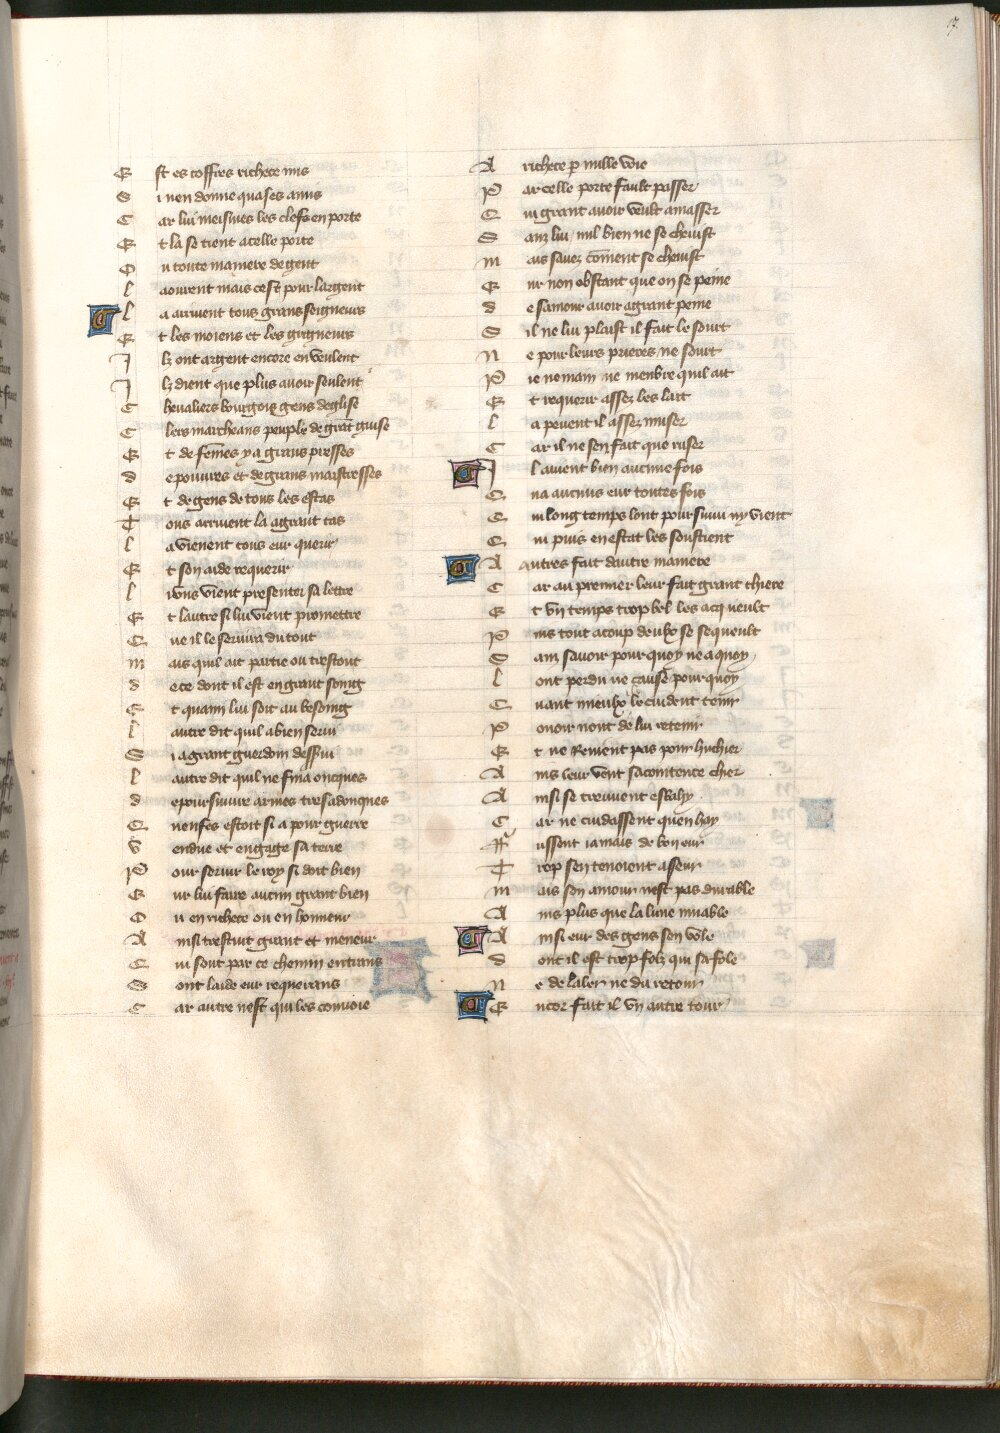 17
Est es coffres richece mis
Si nen donne quases amis
Car lui meismes les clefs en porte
Et la se tient a celle porte
Ou toute maniere de gent
Laourent mais cest pour largent
La arrivent tous grans seigneurs
Et les moiens et les grigneurs
Ilz ont argent encore en veulent
Ilz dient que plus avoir seulent
Chevaliers bourgois gens deglise
Clers marcheans peuple de grāt guise
Et de fēmes y a grans presses
De povres et de grans maistresses
Et de gens de tous les estas
Tous arrivent la a grant tas
La vienent tous eur querir
Et son aide requerir
Luns vient presenter sa lettre
Et lautre si lui vient promettre
Que il le servira du tout
Mais quil ait partie ou trestout
De ce dont il est en grant soing
Et quanin lui soit au besoing
Lautre dit quil a bien servi
Si a grant guerdon desservi
Lautre dit quil ne fina oncques
De poursuivre armes tres adonques
Quenfes estoit si a pour guerre
Vendue et engage sa terre
Pour servir le roy si doit bien
Eur lui faire aucun grant bien
Ou en richece ou en honneur
Ainsi trestuit grant et meneur
Qui sont par ce chemin entrans
Sont laide eur requerans
Car autre nest qui les convoie
A richece p mille voie
Par celle porte fault passer
Qui grant avoir veult amasser
Sanz lui nul bien ne se chevist
Mais savez cōment se chevist
Eur non obstant que on se peine
De samour avoir a grant peine
Sil ne lui plaist il fait le sourt
Ne pour leurs prieres ne sourt
Pie ne main ne menbre quil ait
Et requerir assez les lait
La pevent il assez muser
Car il ne sen fait que ruser
Il avient bien aucune fois
Qua aucuns eur toutes fois
Qui long temps lont poursuivi ny vient
Qui puis en estat les soustient
A autres fait dautre maniere
Car au premier leur fait grant chiere
Et un temps trop bel les acqueult
Puis tout a coup deulx se sequeult
Sanz savoir pour quoy ne a quoy
Lont perdu ne cause pourquoy
Quant mieulx le cuident tenir
Pouoir nont de lui retenir
Et ne revient pas pour huchier
Ains leur vent sacointence cher
Ainsi se treuvent esbahy
Car ne cuidassent quen hay
Fussent iamais de bon eur
Trop sen tenoient asseur
Mais son amour nest pas durable
Ains plus que la lune muable
Ainsi eur des gens son vole
Dont il est trop folz qui safole
Ne de laler ne du retour
Encor fait il un autre tour